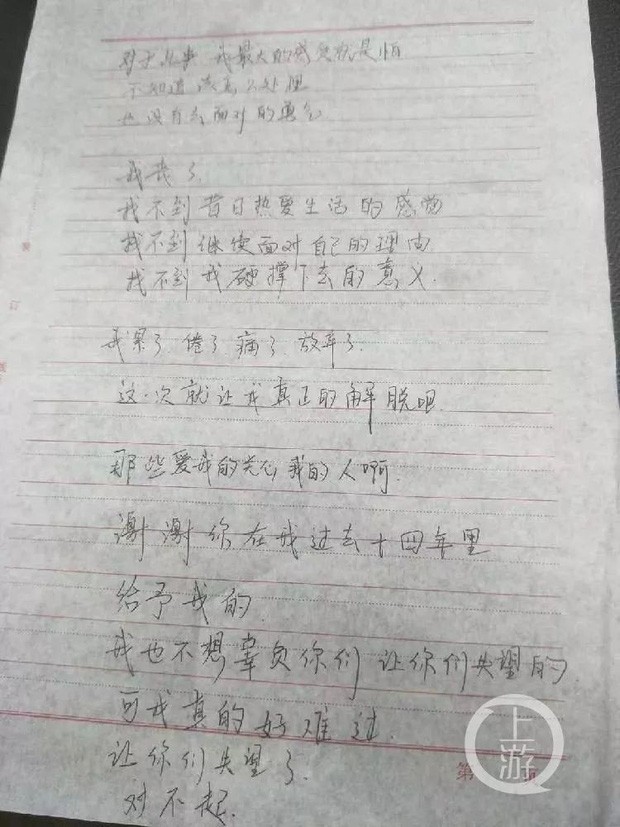 我最大的感负就是怕
不知道该怎么处理
也没有去面对的勇气
找不到昔日热爱生活的感觉
找不到继续面对自己的理由
找不到我硬撑下去的意义.
我累了.倦了.痛了.放弃了.
这一次就让我真正的解脱吧
那些爱我的关心我的人啊.
谢谢你在我过去十四年里
给予我的.
我也不想辜负你们 让你们失望的.
可我真的好难过.
让你们失望了.
对不起.
第 页
上游